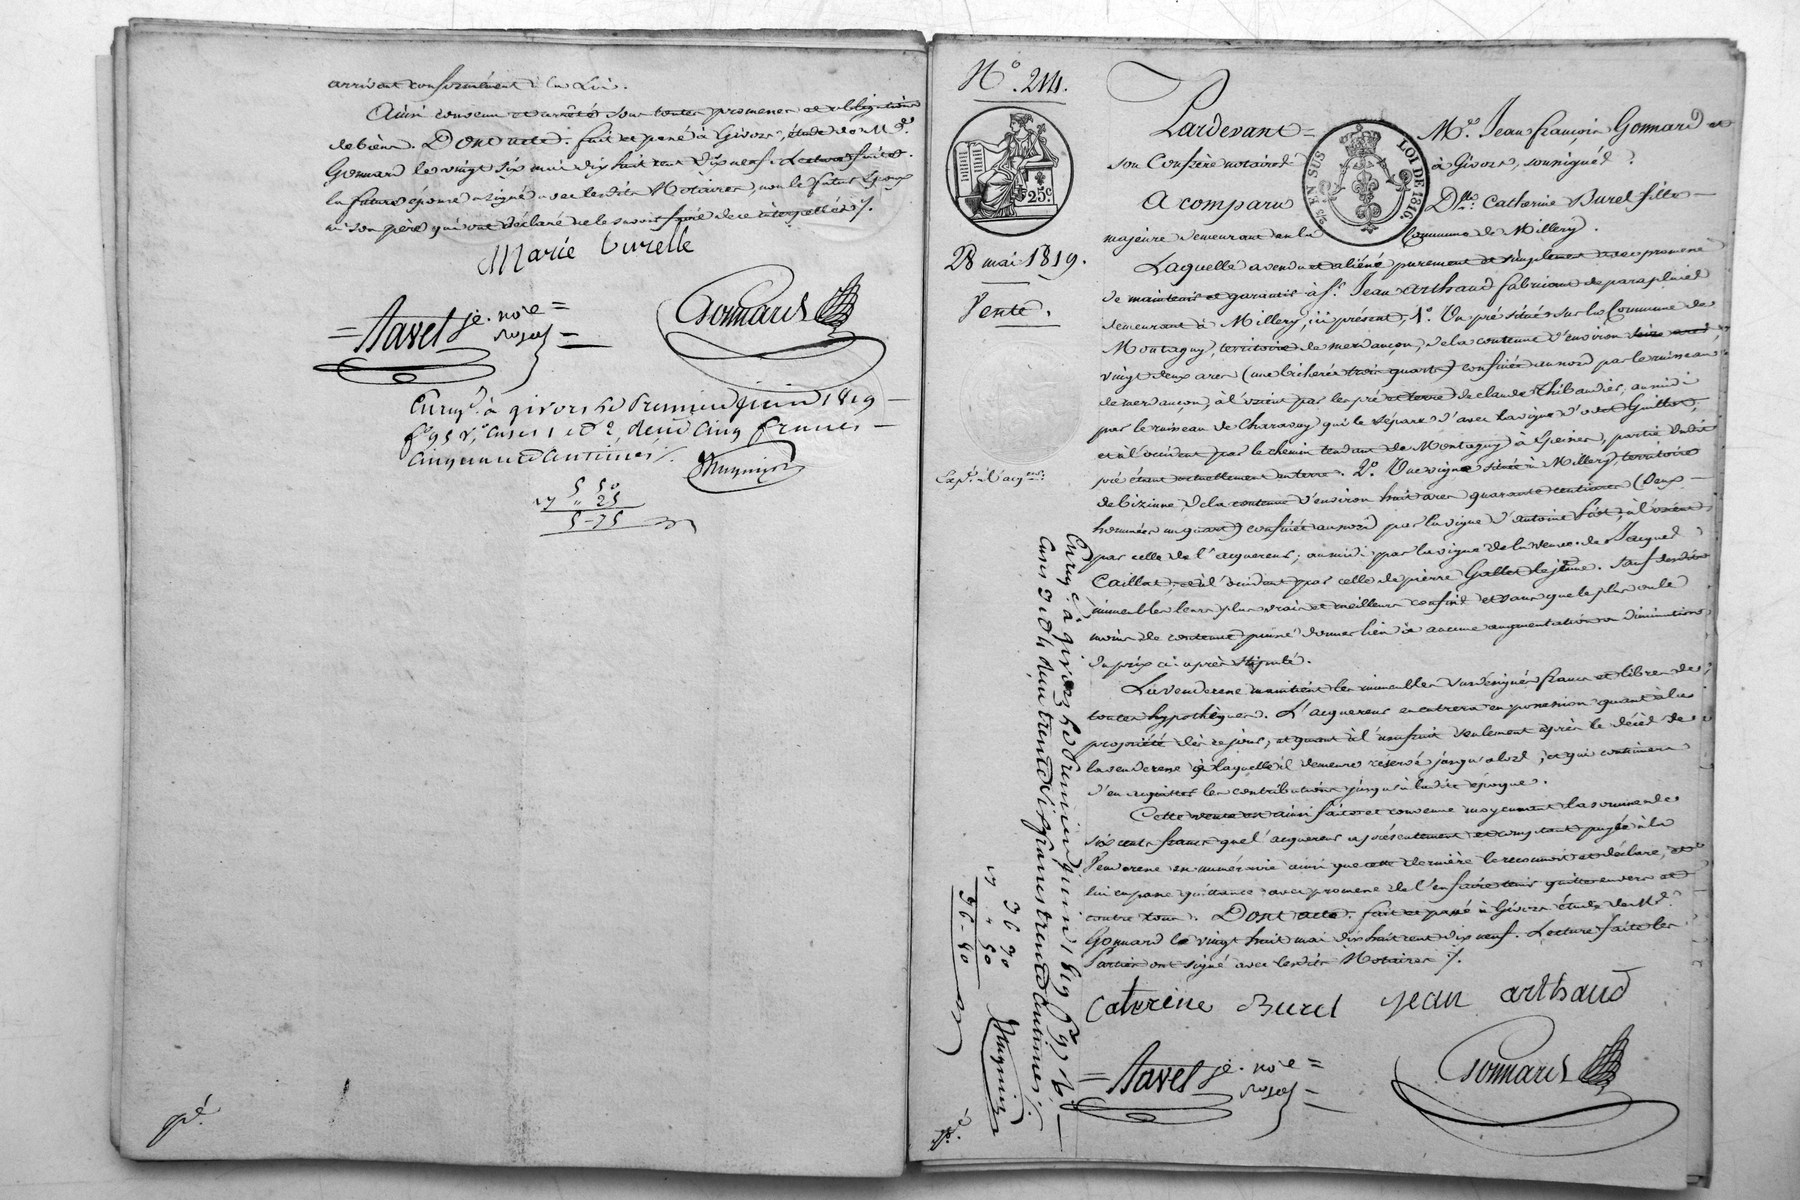 arrivant conformément à la Loi.
Ainsi convenu et arrêté sous toutes promesses et obligations
de biens. Dont acte. fait et passé à Givors, étude de Me.
Gonnard le vingt six mai dix huit cent dix neuf. Lecture faite.
la future épouse a signé avec lesdits Notaires, non le futur Epoux
ni son père qui ont déclaré ne le savoir faire de ce interpellés ./.
Marie Curelle
= Navel je. nore =
royal =
Gonnard
Enregé. à givors Le Premier juin 1819 —
fo 95 vo, Cases 1 et 2, deçu Cinq francs —
Cinquante Centimes /.
5 50
" 25
5-75
No. 214.
25c.
28 mai 1819.
Vente.
Exp. à l'acqr.
Pardevant = Me. Jean françois Gonnard et
EN SUS LOI DE 1816.
son Confrère notaires à Givors, soussignés.
A comparu Dlle. Catherine Burel fille
majeure demeurant en la Commune de Millery.
Laquelle a vendu et aliéné purement et simplement avec promesse
de maintenir et garantir à Sr. Jean Arthaud fabricant de parapluies
demeurant à Millery, ici présent, 1o. Un pré situé sur la Commune de
Montagny, territoire de merdançon, de la contenue d'environ
vingt deux ares (une bicherée trois quarts) confiné au nord par le ruisseau
de merdançon, à l'orient par les pré et terre de claude Thibaudier, au midi
par le ruisseau de Charavay qui le sépare d'avec la vigne d' Guillot,
et à l'occident par le chemin tendant de Montagny à Greines, partie dudit
pré étant actuellement en terre. 2o. Une vigne située à Millery, territoire
de bizinne, de la contenue d'environ huit ares quarante centiares (deux
hommées un quart) confinée au nord par la vigne d'antoine fat, à l'orient
par celle de l'acquereur, au midi par la vigne de la veuve de Jacques
Caillat, et à l'occident par celle de pierre Gallet le jeune. Sauf desdits
immeubles leurs plus vrais et meilleurs confins et sans que le plus ou le
moins de contenue puisse donner lieu à aucune augmentation ou diminution
du prix ci-après stipulé.
La venderesse maintient les immeubles susdésignés francs et libres de
toutes hypothèques. L'acquereur en entrera en possession quant à la
propriété dès ce jour, et quant à l'usufruit seulement après le décès de
la venderesse à laquelle il demeure réservé jusqu'alors, et qui continuera
d'en acquitter les contributions jusqu'à ladite époque.
Cette vente est ainsi faite et convenue moyennant la somme de
six cents francs que l'acquereur a présentement et comptant payée à la
Venderesse en numéraire ainsi que cette dernière le reconnoit et déclare, et
lui en passe quittance avec promesse de l'en faire tenir quitte envers et
contre tous. Dont acte. fait et passé à Givors étude de Me.
Gonnard le vingt huit mai dix huit cent dix neuf. Lecture faite les
Parties ont signé avec lesdits Notaires ./.
Caterine Burel Jean arthaud
= Navel je. nore =
royal =
Gonnard
Enregé. à givors Le Premier juin 1819 fo 97 vo.
Cases 3 et 4 deçu trente Six francs trente Centimes /.
36 30
" 50
36-80